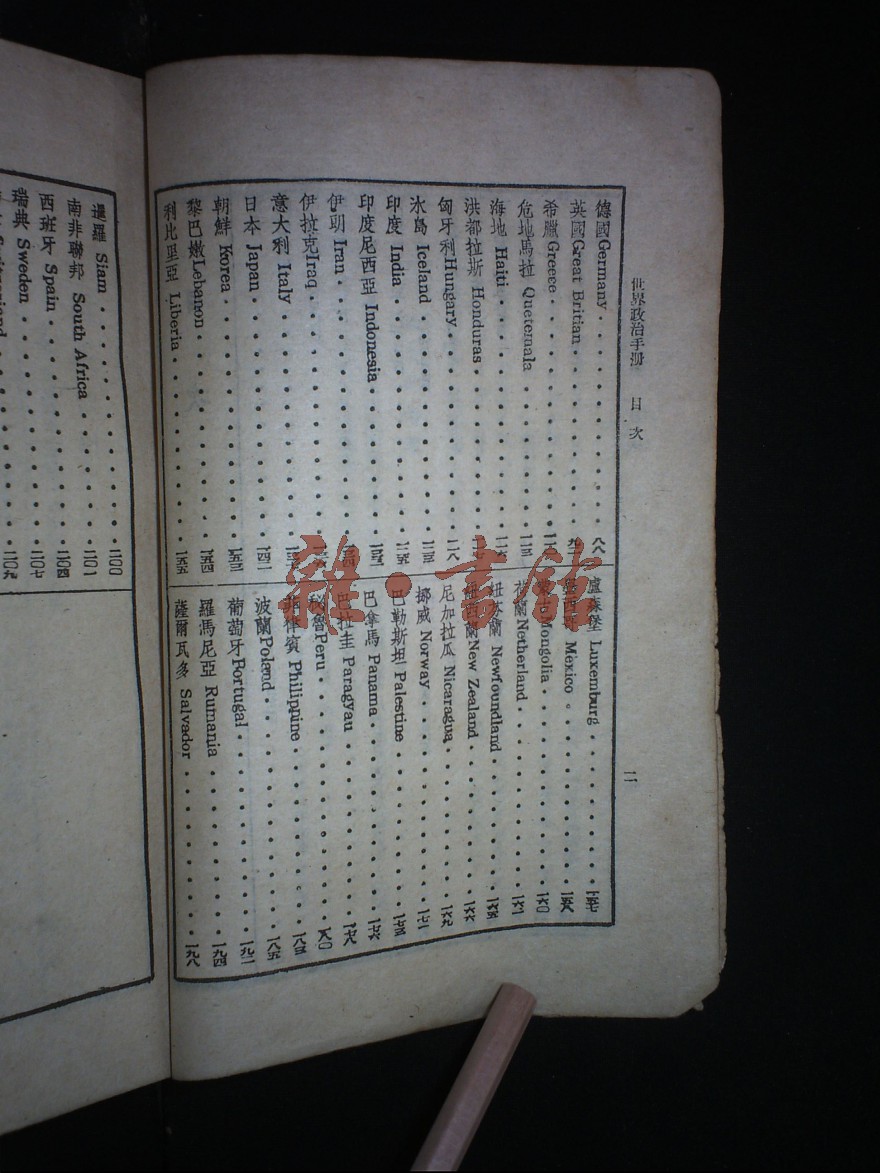 世界政治手冊 目次 二
德國Germany 八八
英國Great Britian
希臘Greece
危地馬拉 Quetemala
海地 Haiti
洪都拉斯 Honduras
匈牙利Hungary
冰島 Iceland
印度 India
印度尼西亞 Indonesia
伊朗 Iran
伊拉克Iraq
意大利 Italy
日本 Japan 一四二
朝鮮 Korea 一五三
黎巴嫩Lebanon 一五四
利比里亞 Liberia 一五五
盧森堡 Luxemburg 一五七
墨西哥 Mexico 一五八
蒙古Mongolia 一六〇
荷蘭Netherland 一六一
紐芬蘭 Newfoundland 一六五
紐西蘭New Zealand 一六六
尼加拉瓜 Nicaragua 一六九
挪威 Norway 一七一
巴勒斯坦 Palestine 一七三
巴拿馬 Panama 一七六
巴拉圭 Paragyau 一七八
秘魯Peru 一八〇
菲律賓 Philippine 一八三
波蘭Poland 一八五
葡萄牙Portugal 一九一
羅馬尼亞 Rumania 一九四
薩爾瓦多 Salvador 一九八
暹羅 Siam 二〇〇
南非聯邦 South Africa 二〇一
西班牙 Spain 二〇四
瑞典 Sweden 二〇七
雜·書館